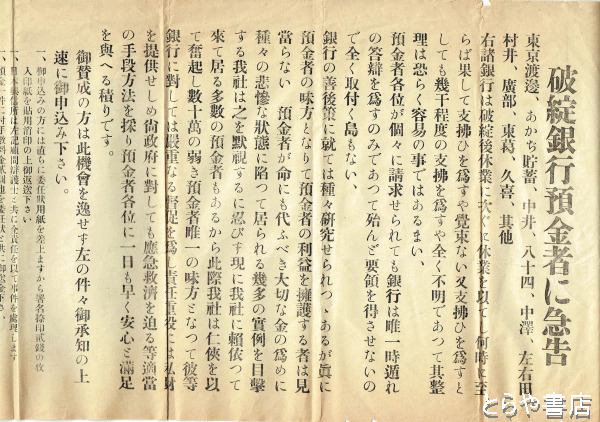 破綻銀行預金者に急告
東京渡邊、あかぢ貯蓄、中井、八十四、中澤、左右田、
村井、廣部、東葛、久喜、其他
右諸銀行は破綻後休業に次ぐに休業を以てし何時に至
らば果して支拂ひを爲すや覺束ない又支拂ひを爲すと
しても幾干程度の支拂を爲すや全く不明であつて其整
理は恐らく容易の事ではあるまい、
預金者各位が個々に請求せられても銀行は唯一時遁れ
の答辯を爲すのみであつて殆んど要領を得させないの
で全く取付く島もない、
銀行の善後策に就ては種々研究せられつゝあるが眞に
預金者の味方となりて預金者の利益を擁護する者は見
當らない 預金者が命にも代ふべき大切な金の爲めに
種々の悲慘な狀態に陷つて居られる幾多の實例を目擊
する我社は之を默視するに忍びず現に我社に賴依つて
來て居る多數の預金者もあるから此際我社は仁俠を以
て奮起し數十萬の弱き預金者唯一の味方となつて彼等
銀行に對しては嚴重なる督促を爲し責任重役には私財
を提供せしめ尙政府に對しても應急救濟を迫る等適當
の手段方法を採り預金者各位に一日も早く安心と滿足
を與へる積りです。
御賛成の方は此機會を逸せず左の件々御承知の上
速に御申込み下さい。
一、御申込みの方には直ちに委任狀用紙を差上ますから署名捺印貳錢の收
入印紙を貼用消印の上御返送下さい
とらや書店